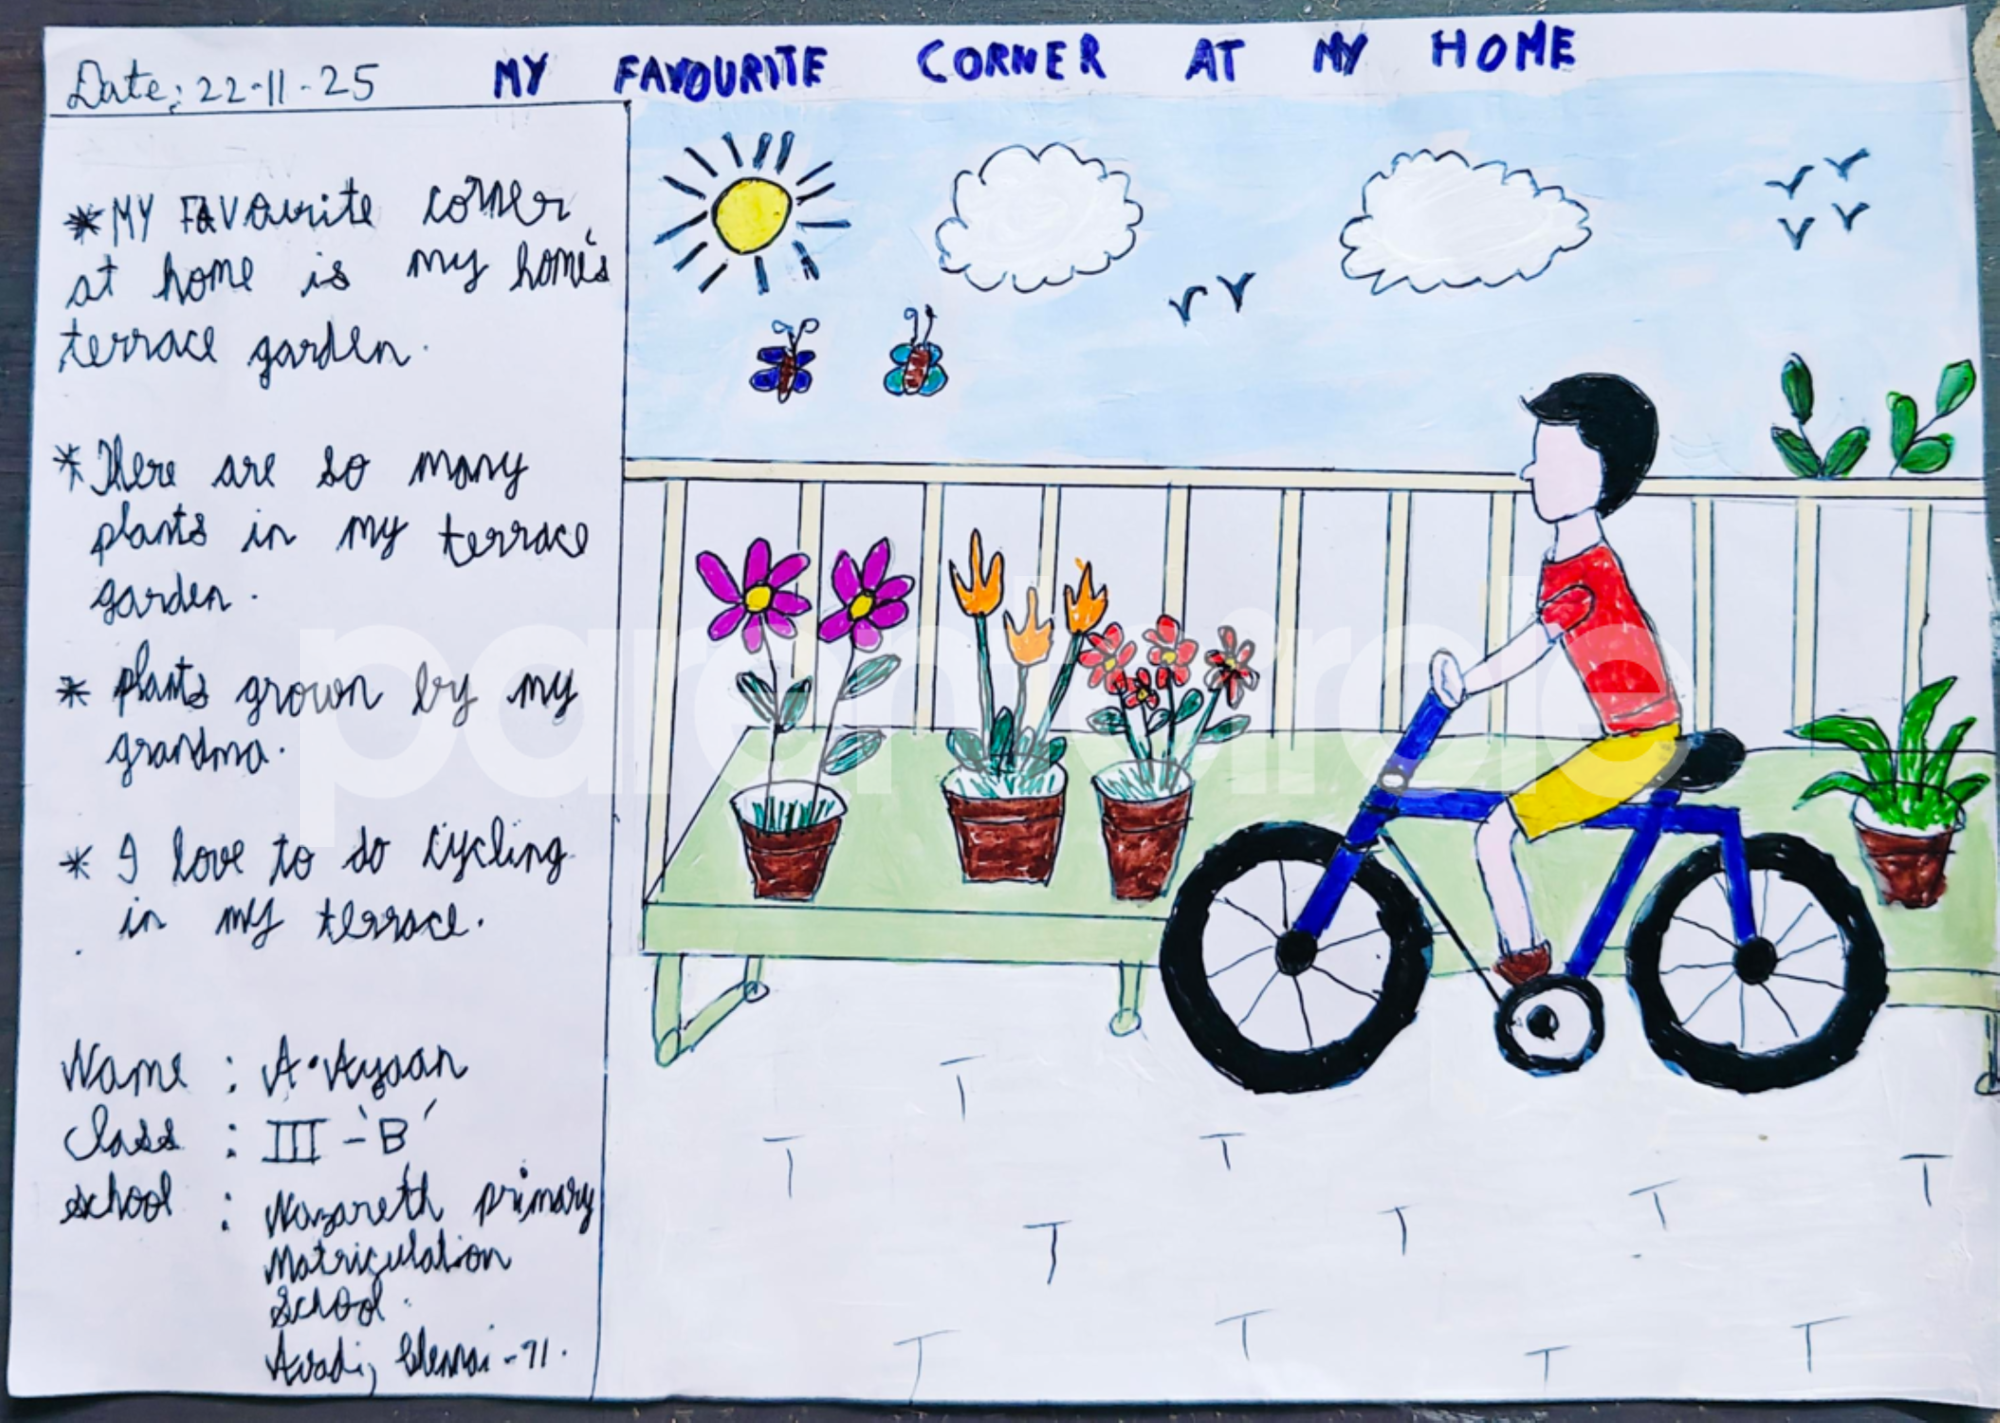 Date: 22-11-25
MY FAVOURITE CORNER AT MY HOME
* MY FAVourite corner
at home is my home's
terrace garden.
* There are so many
plants in my terrace
garden.
* plants grown by my
grandma.
* I love to do cycling
in my terrace.
Name : A. Ayaan
Class : III - 'B'
School : Nazareth primary
Matriculation
School.
Avadi, Chennai - 71.
parentcircle